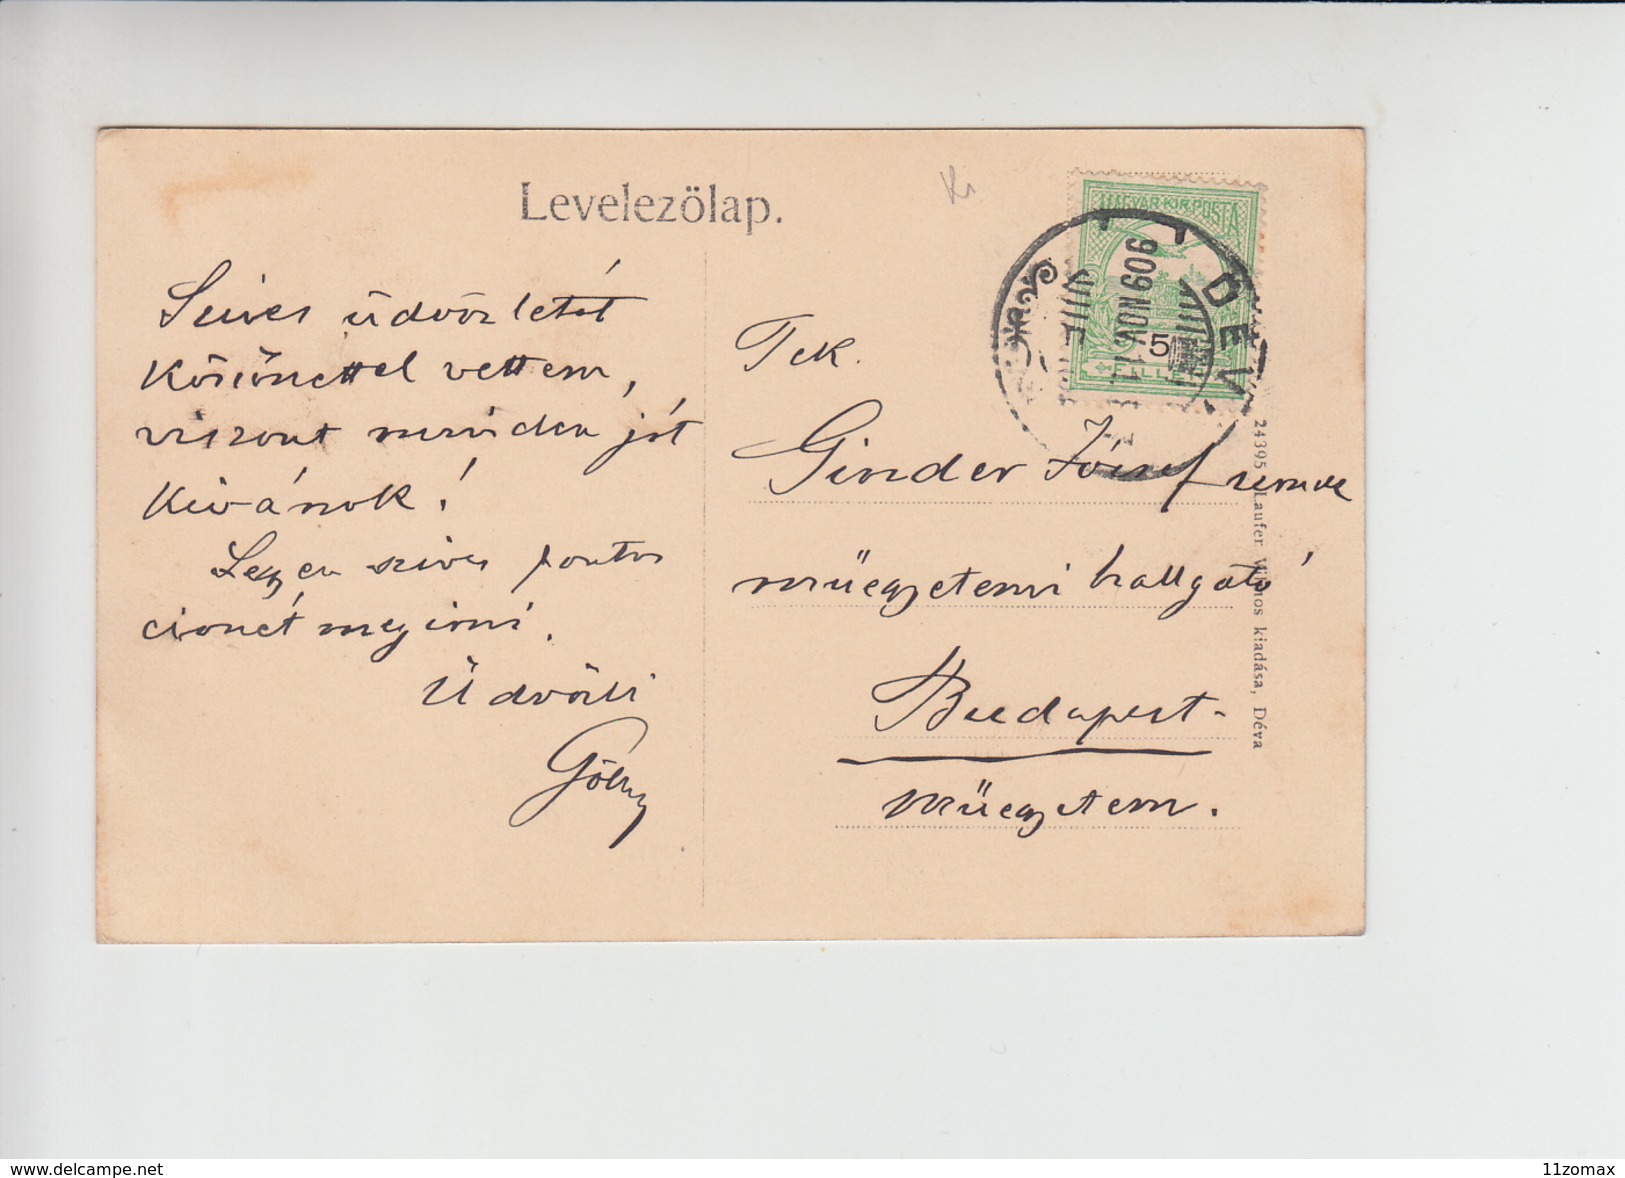 Levelezőlap.
Szives üdvözletét
Köszönettel vettem,
viszont minden jót
Kivánok!
Legyen szives pontos
cimét megirni.
Üdvözli
Tek.
Ginder József
műegyetemi hallgató
Budapest.
műegyetem.
MAGYAR KIR. POSTA
5
FILLÉR
DÉV
909 NOV 11
24395 Laufer Vilmos kiadása, Déva
www.delcampe.net
11zomax